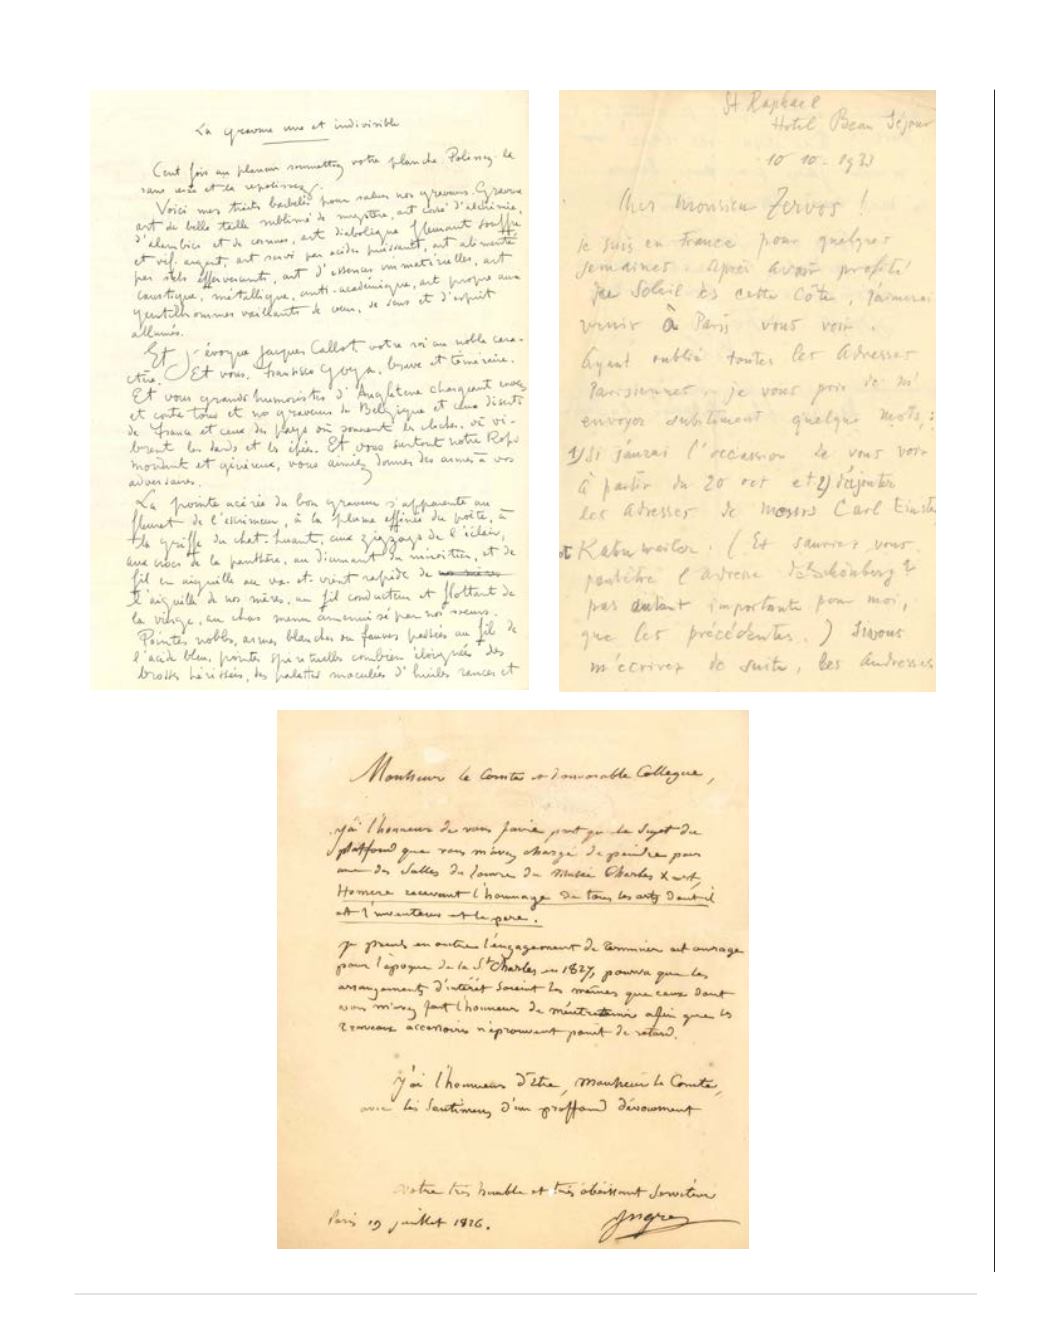 La gravure une et indivisible
Cent fois au planeur soumettez votre planche. Polissez-la
sans cesse et la repolissez.
Voici mes traits barbelés pour saluer nos graveurs. Gravure
art de belle taille sublimé de mystère, art corsé d'alchimie,
d'alambics et de cornues, art diabolique fleurant souffre
et vif argent, art servi par acides puissants, art alimenté
par sels effervescents, art d'essences immatérielles, art
caustique, métallique, anti-académique, art propre aux
gentilshommes vaillants de cœur, de sens et d'esprit
allumés.
Et j'évoque Jacques Callot, votre roi au noble carac-
tère. Et vous, Francisco Goya, brave et téméraire.
Et vous grands humoristes d'Angleterre chargeant envers
et contre tous et nos graveurs de Belgique et ceux diserts
de France et ceux des pays où sonnent les cloches, où vi-
brent les dards et les épées. Et vous surtout notre Rops
mordant et généreux, vous aimiez donner des armes à vos
adversaires.
La pointe acérée du bon graveur s'apparente au
fleuret de l'escrimeur, à la plume effinée du poète, à
la griffe du chat-huant, aux zigzags de l'éclair,
aux crocs de la panthère, au diamant du miroitier, et de
fil en aiguille au va-et-vient rapide de
l'aiguille de nos mères, au fil conducteur et flottant de
la vierge, au chas menu amenuisé par nos sœurs.
Pointes nobles, armes blanches ou fauves passées au fil de
l'acide bleu, pointes spirituelles combien éloignées des
brosses hérissées, des palettes maculées d'huiles rances et
St Raphael
Hotel Beau Séjour
10 10 - 1933
Cher Monsieur Zervos !
Je suis en France pour quelques
semaines. Après avoir profité
du Soleil de cette Côte, j'aimerai
venir à Paris vous voir.
Ayant oublié toutes les Adresses
Parisiennes, je vous prie de m'
envoyer subitement quelque mots, :
1) Si j'aurai l'occassion de vous voir
à partir du 20 oct et 2)
les Adresses de Carl Einstein
et Kahnweiler. (Et sauriez vous
peutêtre l'adresse de Schönberg?
pas autant importante pour moi,
que les précédentes.) Si vous
m'écrivez de suite, les
Monsieur le Comte et honorable Collegue,
j'ai l'honneur de vous faire part que le Sujet du
plaffond que vous m'avez chargé de peindre pour
une des Salles du Louvre du Musée Charles X est,
Homere recevant l'hommage de tous les arts dont il
est l'inventeur et le pere.
je prends en outre l'engagement de terminer cet ouvrage
pour l'époque de la St Charles en 1827, pourvu que les
arrangements d'intérêt soient les mêmes que ceux dont
vous m'avez fait l'honneur de m'entretenir afin que les
travaux accessoires n'éprouvent point de retard.
J'ai l'honneur d'Etre, Monsieur le Comte,
avec les Sentimens d'un proffond dévouement
votre très humble et très obéissant Serviteur
Paris 19 juillet 1826. Ingres